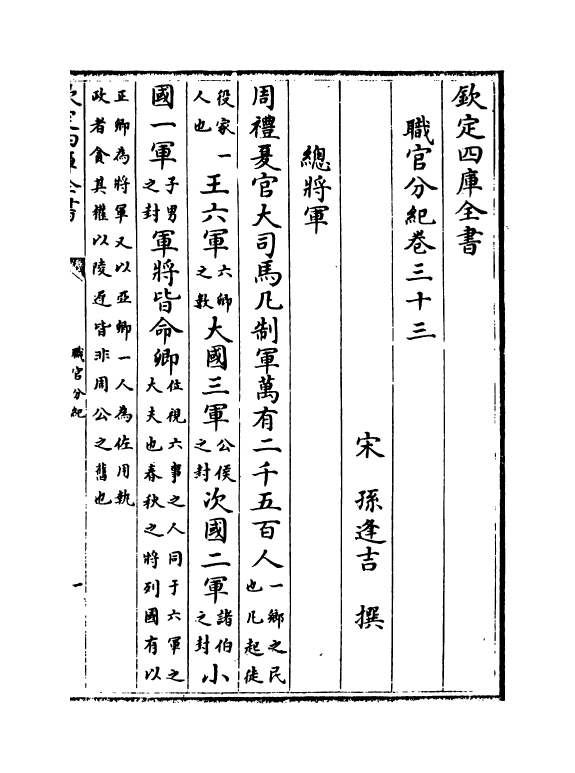 欽定四庫全書
職官分紀卷三十三
宋 孫逢吉 撰
總將軍
周禮夏官大司馬凡制軍萬有二千五百人一鄉之民也凡起徒
役家一人也王六軍六鄉之數大國三軍公侯之封次國二軍諸伯之封小
國一軍子男之封軍將皆命卿位視六事之人同于六軍之大夫也春秋之將列國有以
亞卿為將軍又以亞卿一人為佐用執政者貪其權以陵近皆非周公之舊也
欽定四庫全書
職官分紀
一